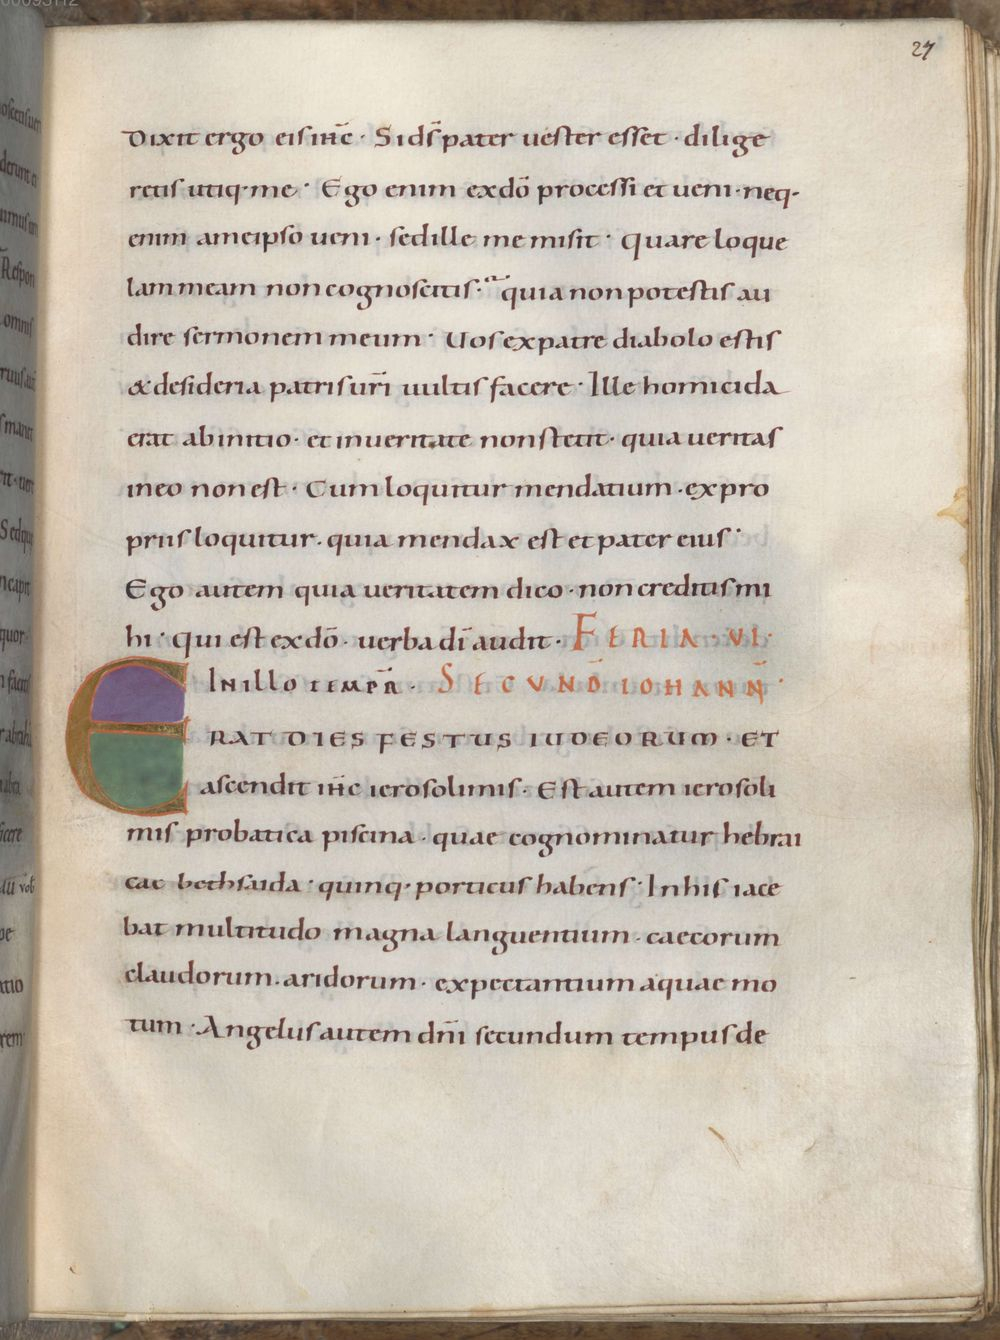 27
Dixit ergo eis ihc̄ · Si ds̄ pater uester esset · dilige
retis utiq· me · Ego enim ex dō processi et ueni · neq·
enim a me ipso ueni · sed ille me misit · quare loque
lam meam non cognoscitis · quia non potestis au
dire sermonem meum · Uos ex patre diabolo estis
& desideria patris uri̅ uultis facere · Ille homicida
erat ab initio · et in ueritate non stetit · quia ueritas
in eo non est · Cum loquitur mendatium · ex pro
priis loquitur · quia mendax est et pater eius ·
Ego autem quia ueritatem dico · non creditis mi
hi · qui est ex dō · uerba di̅ audit · FERIA · VI ·
In illo tempr̄ · SECUND̄ IOHANN̄ ·
ERAT DIES FESTUS IUDEORUM · ET
ascendit ihc̄ ierosolimis · Est autem ierosoli
mis probatica piscina · quae cognominatur hebrai
cae bethsaida · quinq· porticus habens · In his iace
bat multitudo magna languentium · caecorum
claudorum · aridorum · expectantium aquae mo
tum · Angelus autem dni̅ secundum tempus de